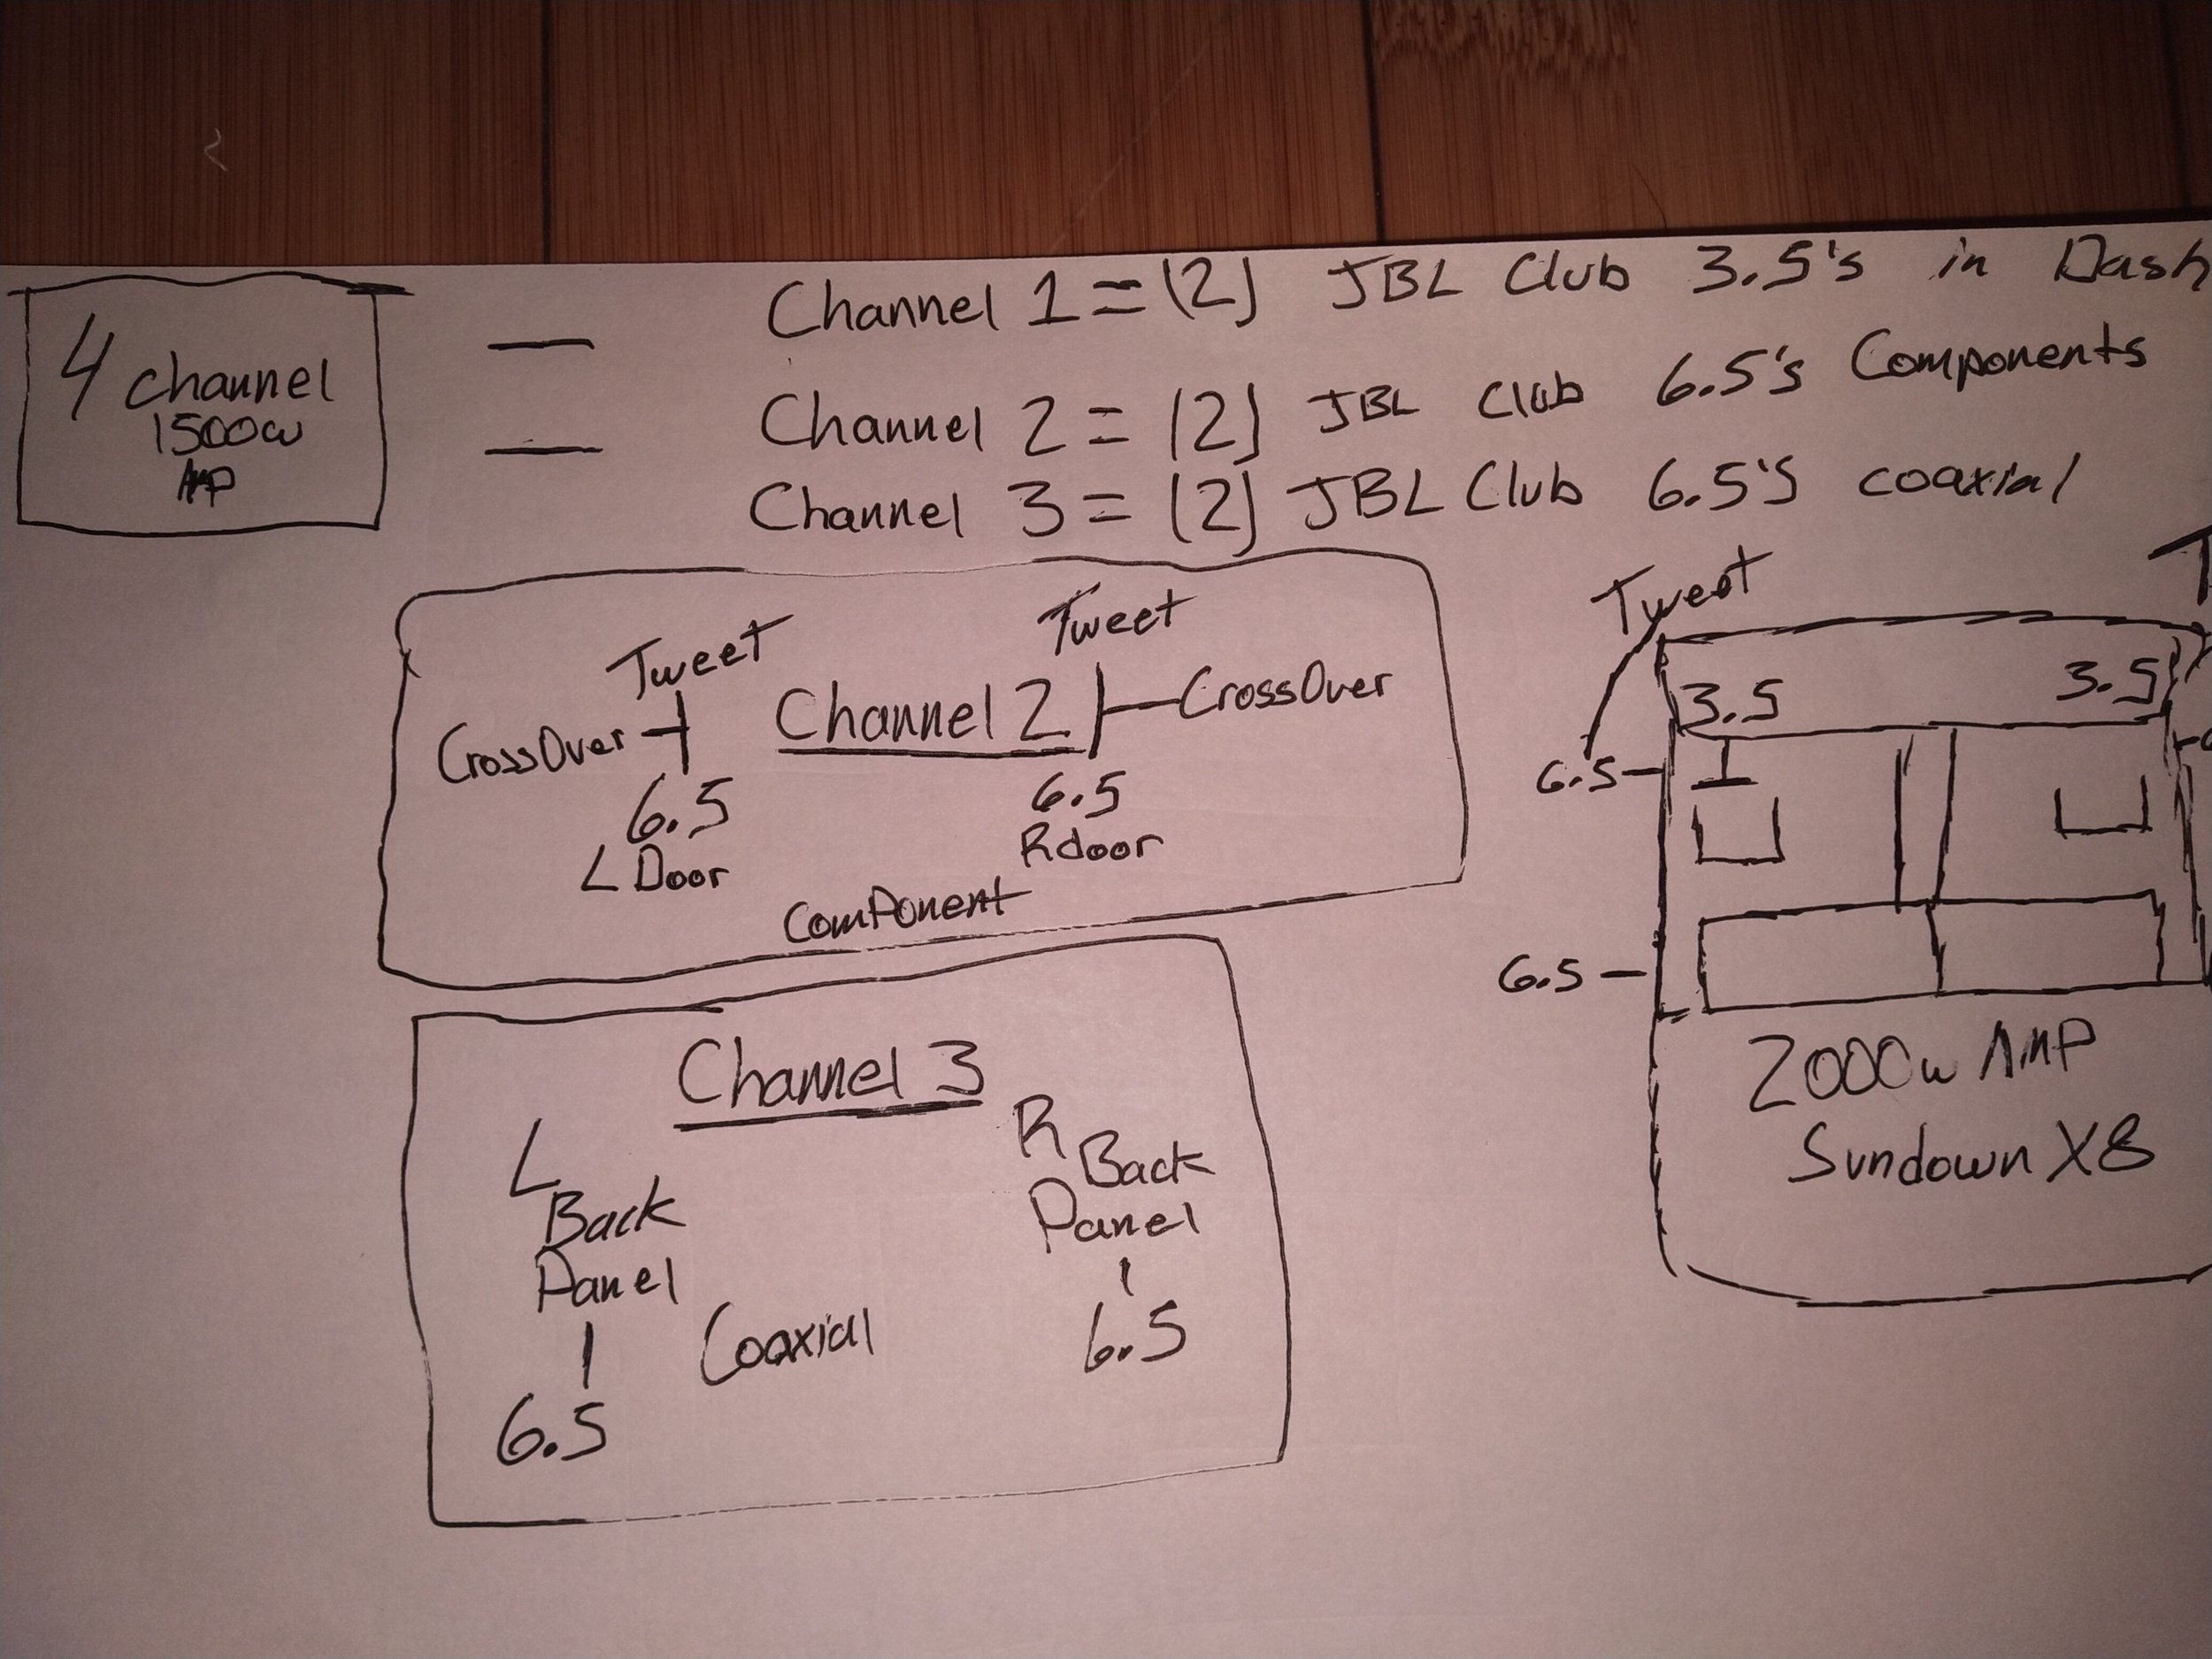 4 channel
1500w
AMP
Channel 1 = (2) JBL Club 3.5's in Dash
Channel 2 = (2) JBL Club 6.5's Components
Channel 3 = (2) JBL Club 6.5's coaxial
Tweet
Tweet
CrossOver
Channel 2
CrossOver
6.5
L Door
6.5
R door
ComPonent
Channel 3
L Back
Panel
6.5
R Back
Panel
6.5
Coaxial
Tweet
T
3.5
3.5
6.5
6.5
2000w AMP
Sundown X8